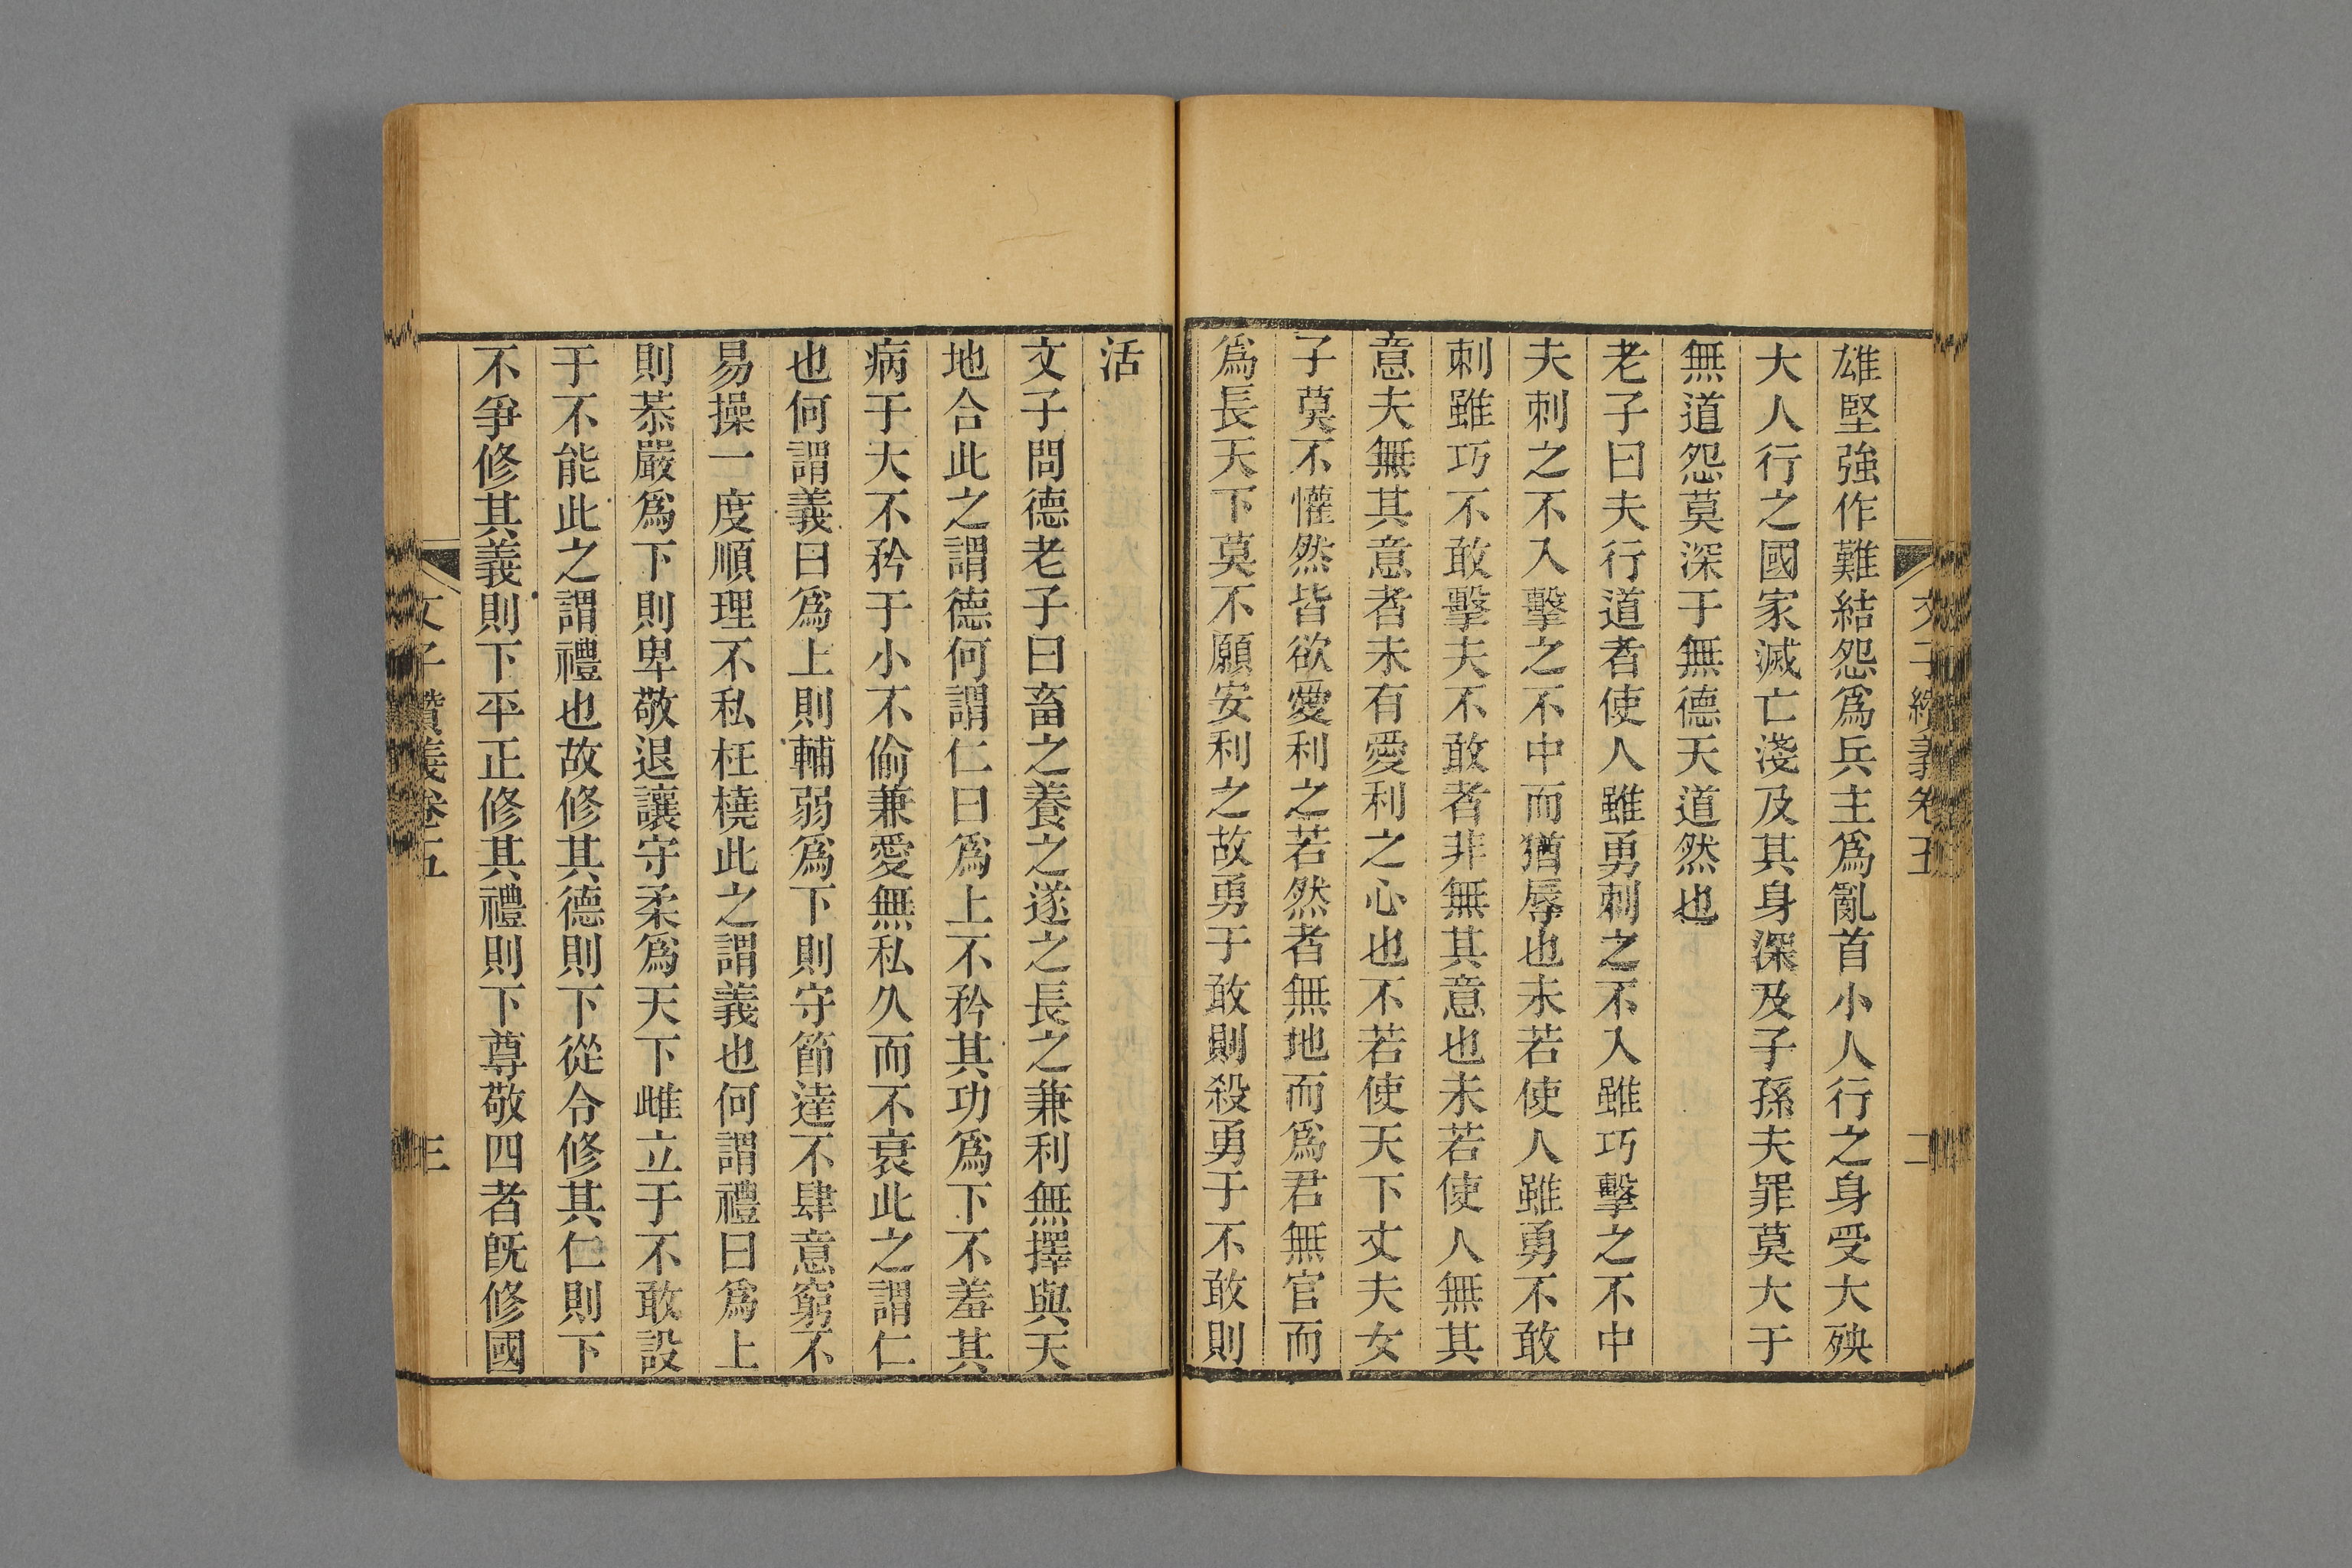 雄堅強作難結怨爲兵主爲亂首小人行之身受大殃
大人行之國家滅亡淺及其身深及子孫夫罪莫大于
無道怨莫深于無德天道然也
老子曰夫行道者使人雖勇刺之不入雖巧擊之不中
夫刺之不入擊之不中而猶辱也未若使人雖勇不敢
刺雖巧不敢擊夫不敢者非無其意也未若使人無其
意夫無其意者未有愛利之心也不若使天下丈夫女
子莫不懽然皆欲愛利之若然者無地而爲君無官而
爲長天下莫不願安利之故勇于敢則殺勇于不敢則
活
文子問德老子曰畜之養之遂之長之兼利無擇與天
地合此之謂德何謂仁曰爲上不矜其功爲下不羞其
病于大不矜于小不偷兼愛無私久而不衰此之謂仁
也何謂義曰爲上則輔弱爲下則守節達不肆意窮不
易操一度順理不私枉橈此之謂義也何謂禮曰爲上
則恭嚴爲下則卑敬退讓守柔爲天下雌立于不敢設
于不能此之謂禮也故修其德則下從令修其仁則下
不爭修其義則下平正修其禮則下尊敬四者旣修國
文子纘義卷五
三